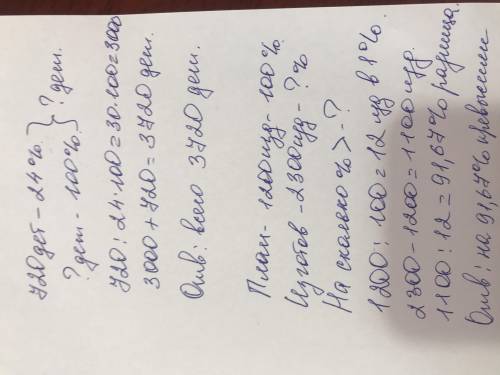 720 дет - 24%. } ? дет.
? дет - 100%.
720 : 24 · 100 = 30 · 100 = 3000
3000 + 720 = 3720 дет.
Отв: всего 3720 дет.
План - 1200 изд - 100%.
Изготов - 2300 изд - ? %
На сколько % > - ?
1200 : 100 = 12 изд в 1%.
2300 - 1200 = 1100 изд.
1100 : 12 = 91,67% разница.
Отв: на 91,67% превышение